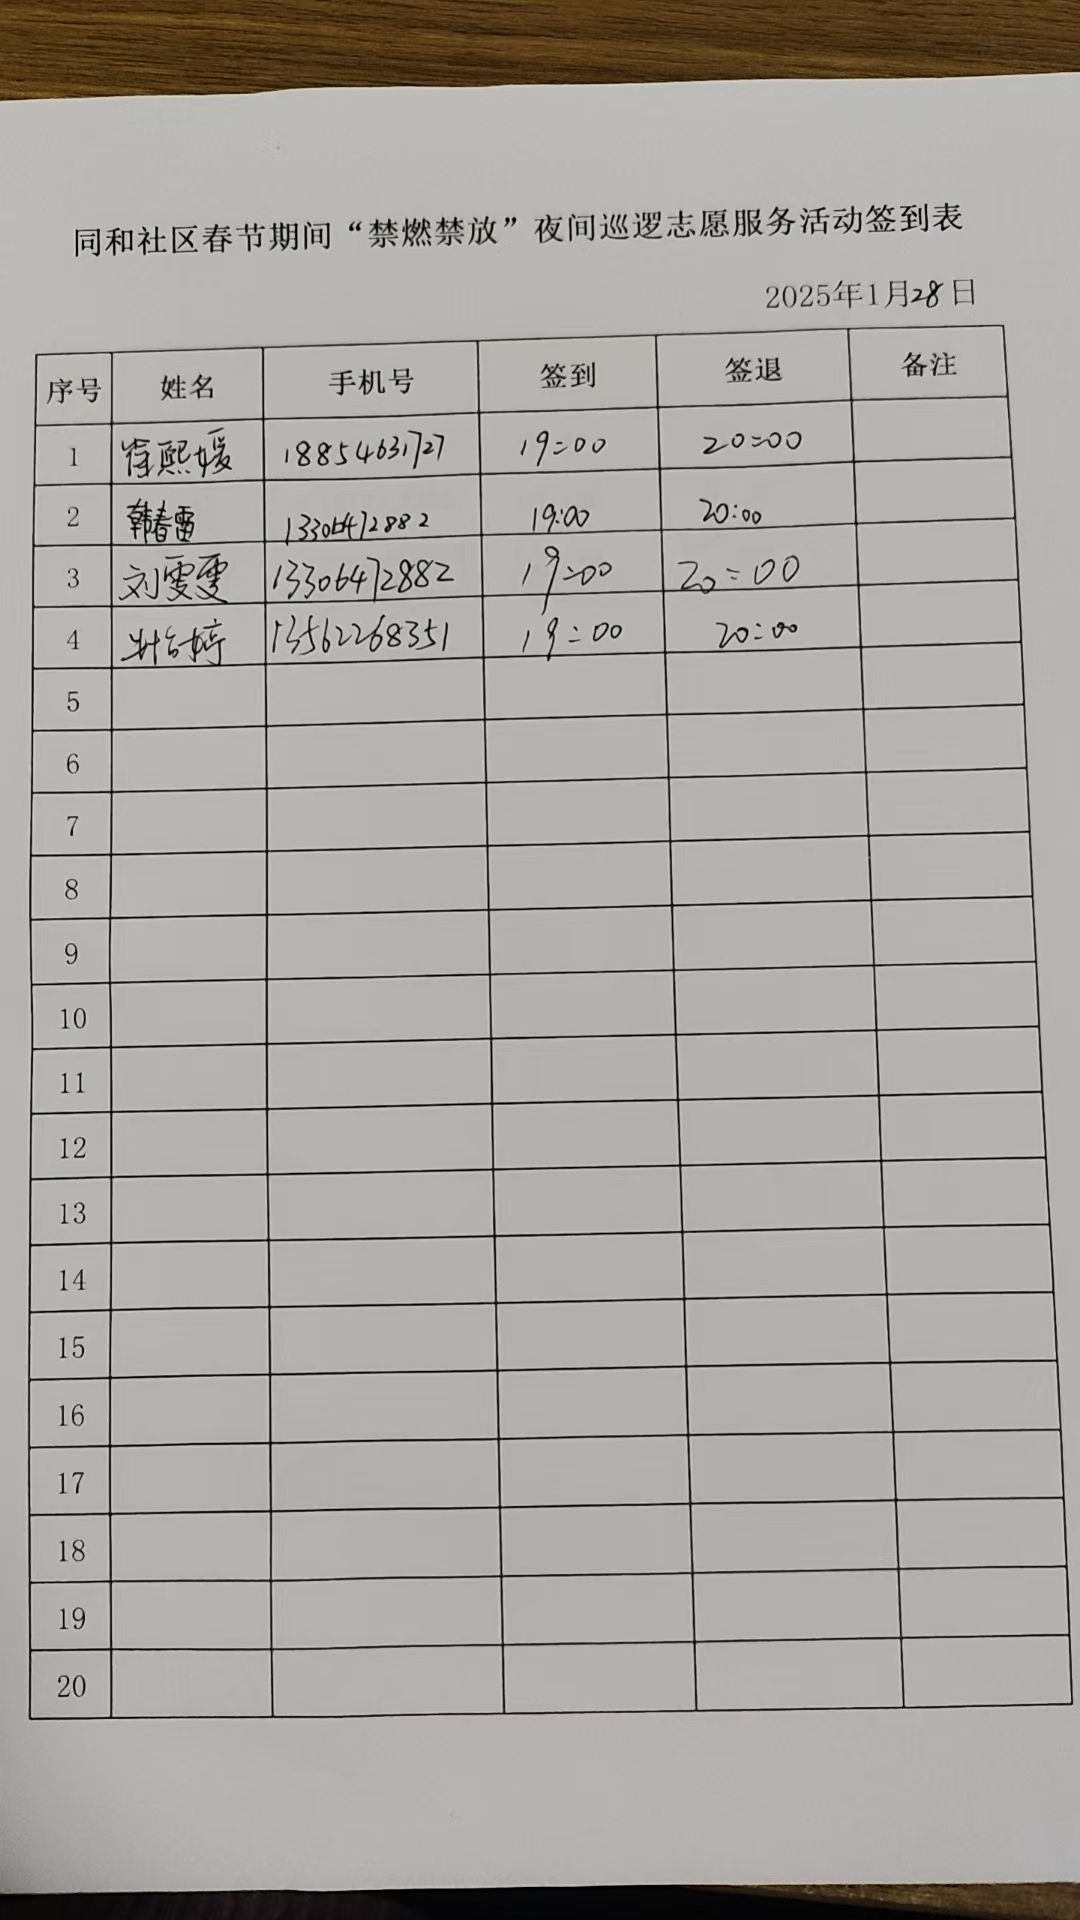 同和社区春节期间“禁燃禁放”夜间巡逻志愿服务活动签到表
2025年1月28日
序号 姓名 手机号 签到 签退 备注
1 崔熙媛 18854631727 19:00 20:00
2 韩春雷 13306472882 19:00 20:00
3 刘雯雯 13306472882 19:00 20:00
4 婷 13562268351 19:00 20:00
5
6
7
8
9
10
11
12
13
14
15
16
17
18
19
20